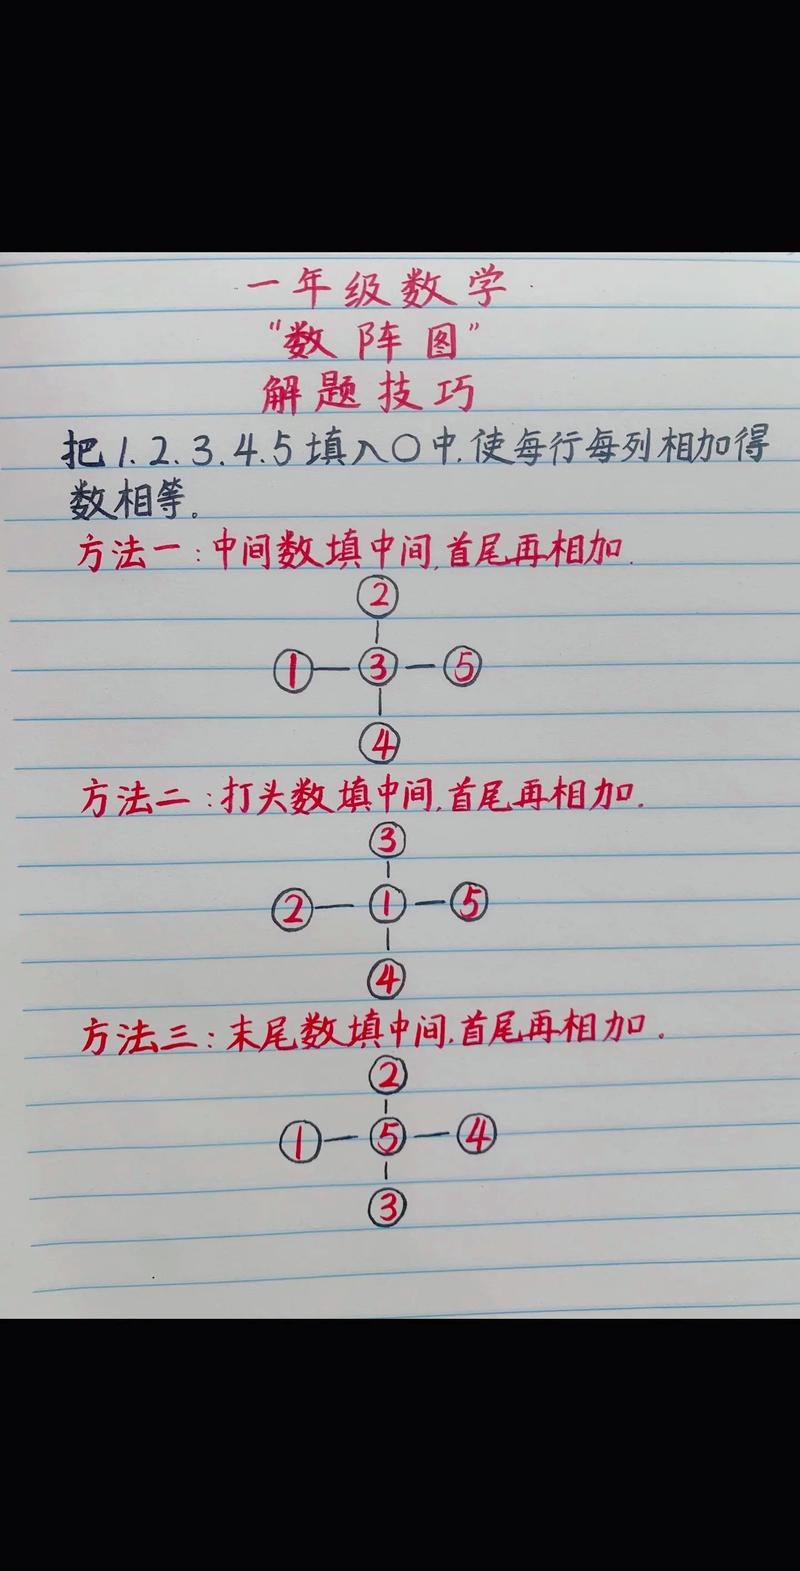 一年级数学
"数阵图"
解题技巧
把1.2.3.4.5填入○中.使每行每列相加得
数相等。
方法一:中间数填中间,首尾再相加.
2
1 3 5
4
方法二:打头数填中间,首尾再相加.
3
2 1 5
4
方法三:末尾数填中间,首尾再相加.
2
1 5 4
3